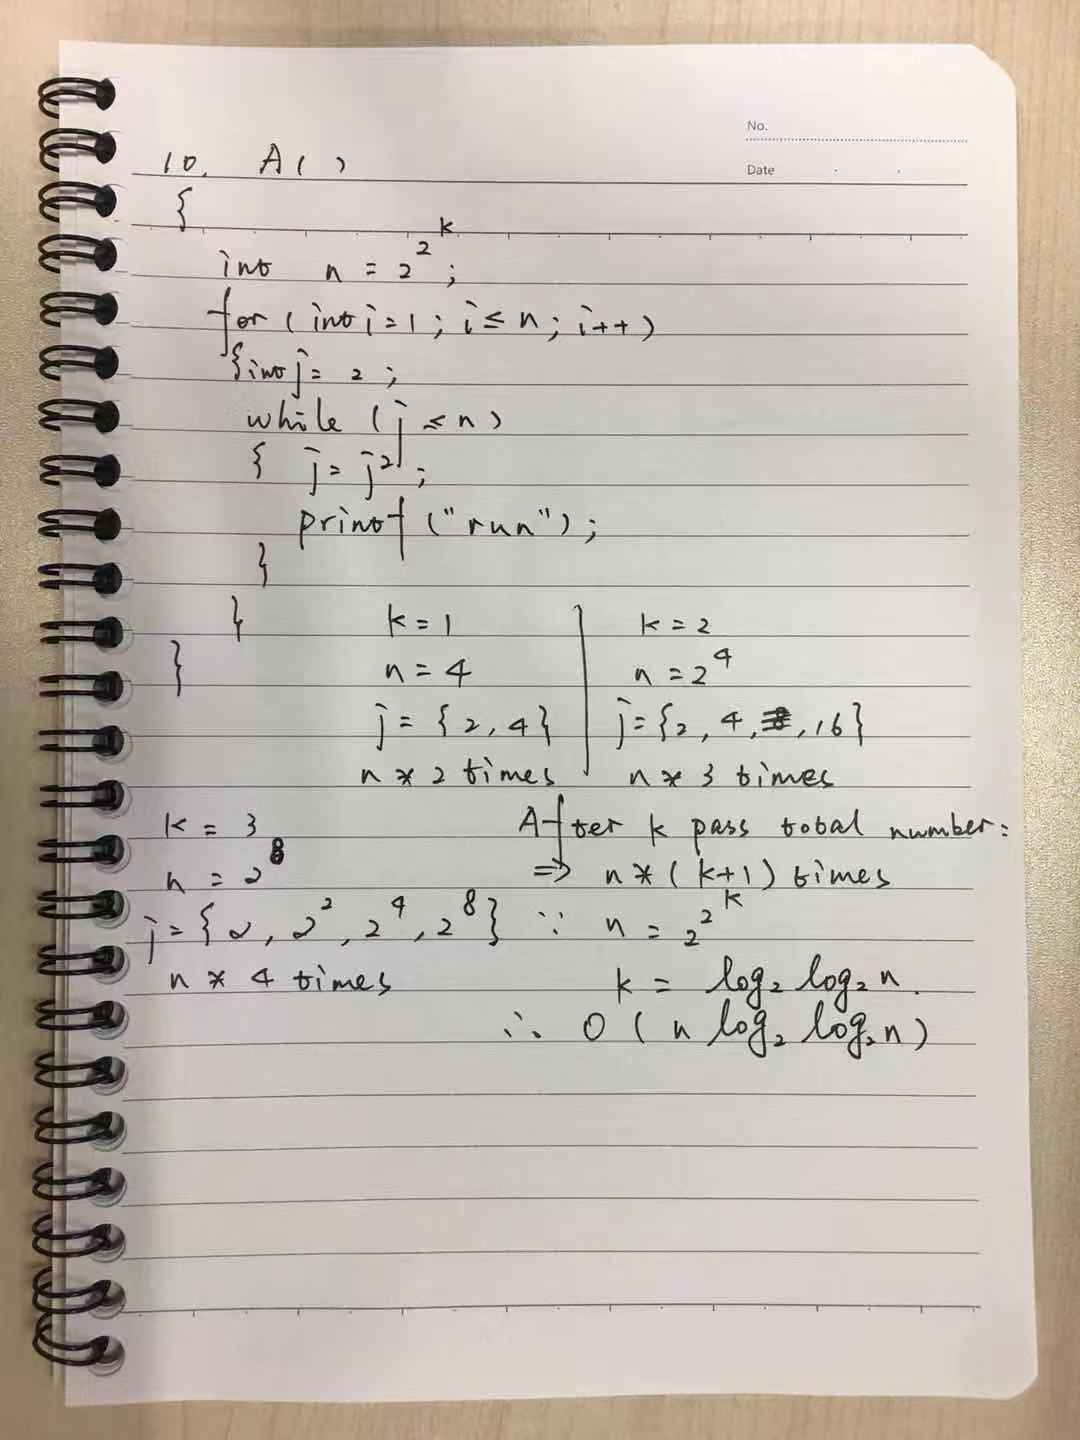 No.
Date
10. A( )
{
int n = 2^2^k ;
for ( int i = 1 ; i ≤ n ; i++ )
{ int j = 2 ;
while ( j ≤ n )
{ j = j² ;
printf ("run") ;
}
}
}
k = 1
n = 4
j = { 2, 4 }
n * 2 times
k = 2
n = 2^4
j = { 2, 4, 16 }
n * 3 times
k = 3
n = 2^8
j = { 2, 2^2, 2^4, 2^8 }
n * 4 times
After k pass total number :
⇒ n * ( k+1 ) times
∵ n = 2^2^k
k = log₂ log₂ n .
∴ O ( n log₂ log₂ n )